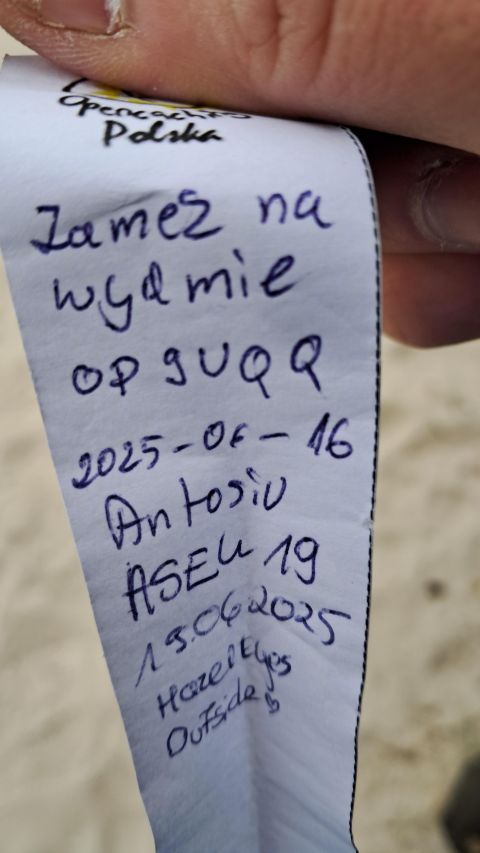 Opencaching
Polska
Zamek na
wydmie
OP9UQQ
2025-06-16
Antosiu
ASEU 19
19.06.2025
HazelEyes
Outside